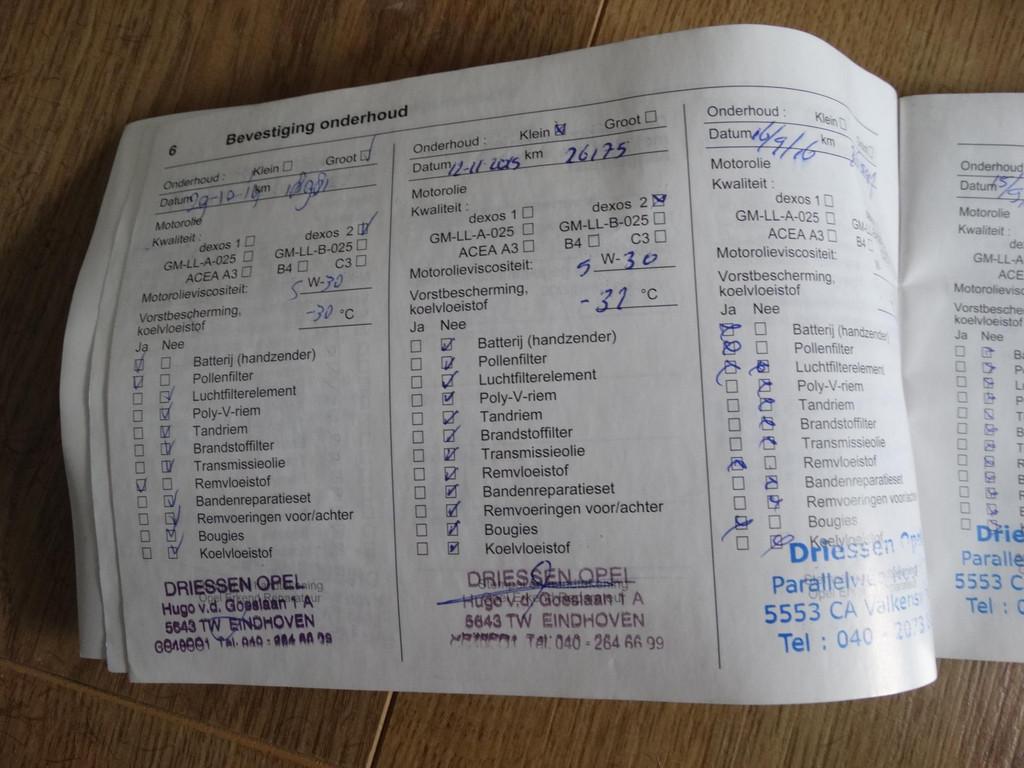 6 Bevestiging onderhoud
Onderhoud : Klein Groot
Datum km
Motorolie
Kwaliteit :
dexos 1 dexos 2
GM-LL-A-025 GM-LL-B-025
ACEA A3 B4 C3
Motorolieviscositeit: 5 W-30
Vorstbescherming,
koelvloeistof -30 °C
Ja Nee
Batterij (handzender)
Pollenfilter
Luchtfilterelement
Poly-V-riem
Tandriem
Brandstoffilter
Transmissieolie
Remvloeistof
Bandenreparatieset
Remvoeringen voor/achter
Bougies
Koelvloeistof
DRIESSEN OPEL
Hugo v.d. Goeslaan 1 A
5643 TW EINDHOVEN
Tel. 040 - 264 66 99
Onderhoud : Klein Groot
Datum 12-11-2015 km 26175
Motorolie
Kwaliteit :
dexos 1 dexos 2
GM-LL-A-025 GM-LL-B-025
ACEA A3 B4 C3
Motorolieviscositeit: 5 W-30
Vorstbescherming,
koelvloeistof -32 °C
Ja Nee
Batterij (handzender)
Pollenfilter
Luchtfilterelement
Poly-V-riem
Tandriem
Brandstoffilter
Transmissieolie
Remvloeistof
Bandenreparatieset
Remvoeringen voor/achter
Bougies
Koelvloeistof
DRIESSEN OPEL
Hugo v.d. Goeslaan 1 A
5643 TW EINDHOVEN
Tel. 040 - 264 66 99
Onderhoud : Klein
Datum 16/9/16 km
Motorolie
Kwaliteit :
dexos 1
GM-LL-A-025
ACEA A3 B4
Motorolieviscositeit:
Vorstbescherming,
koelvloeistof
Ja Nee
Batterij (handzender)
Pollenfilter
Luchtfilterelement
Poly-V-riem
Tandriem
Brandstoffilter
Transmissieolie
Remvloeistof
Bandenreparatieset
Remvoeringen voor/achter
Bougies
Koelvloeistof
Driessen Op
Parallelw
5553 CA Valkens
Tel : 040 - 2073
Onderhoud
Datum
Motorolie
Kwaliteit :
GM-LL-A
ACE
Motorolievisc
Vorstbescherm
koelvloeistof
Ja Nee
Drie
Paralle
5553 C
Tel : 0